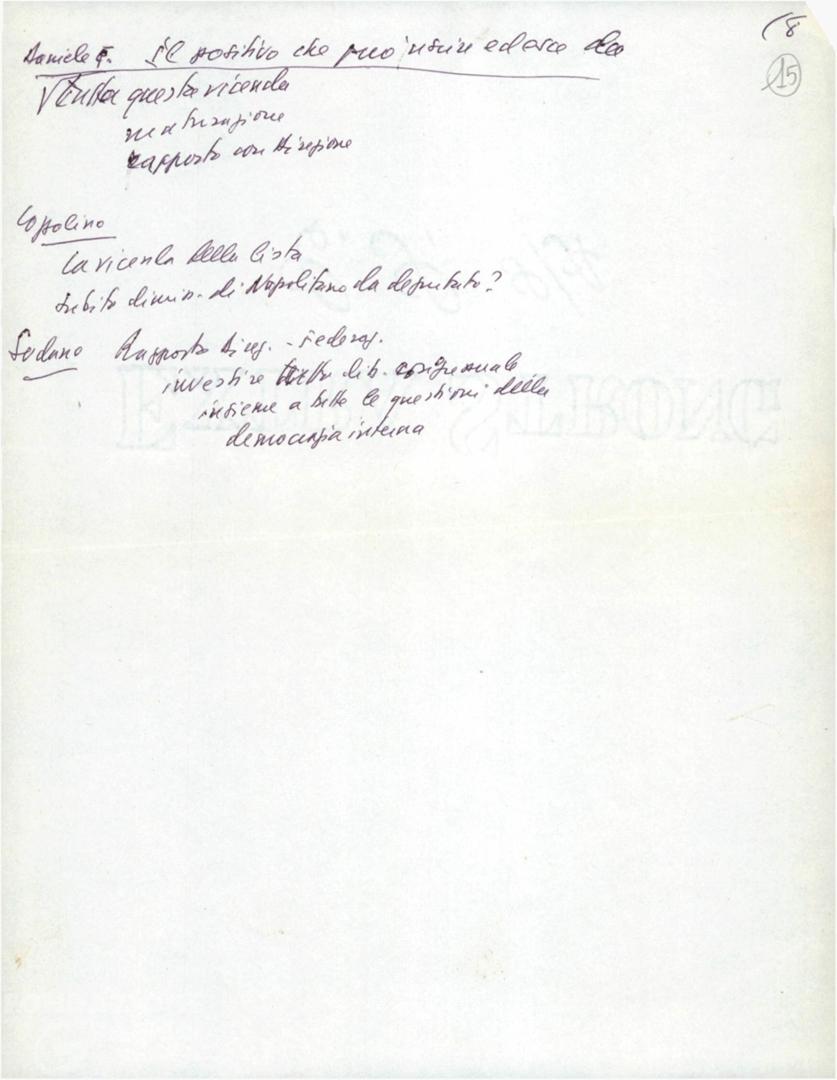 18
15
Daniele F. Il positivo che può uscire ed esce da
tutta questa vicenda
maturazione
rapporto con Direzione
Cossolino
La vicenda della lista
subito dimis. di Napolitano da deputato?
Sodano Rapporto Direz. - Federaz.
investire tutto dib. congressuale
insieme a tutte le questioni della
democrazia interna